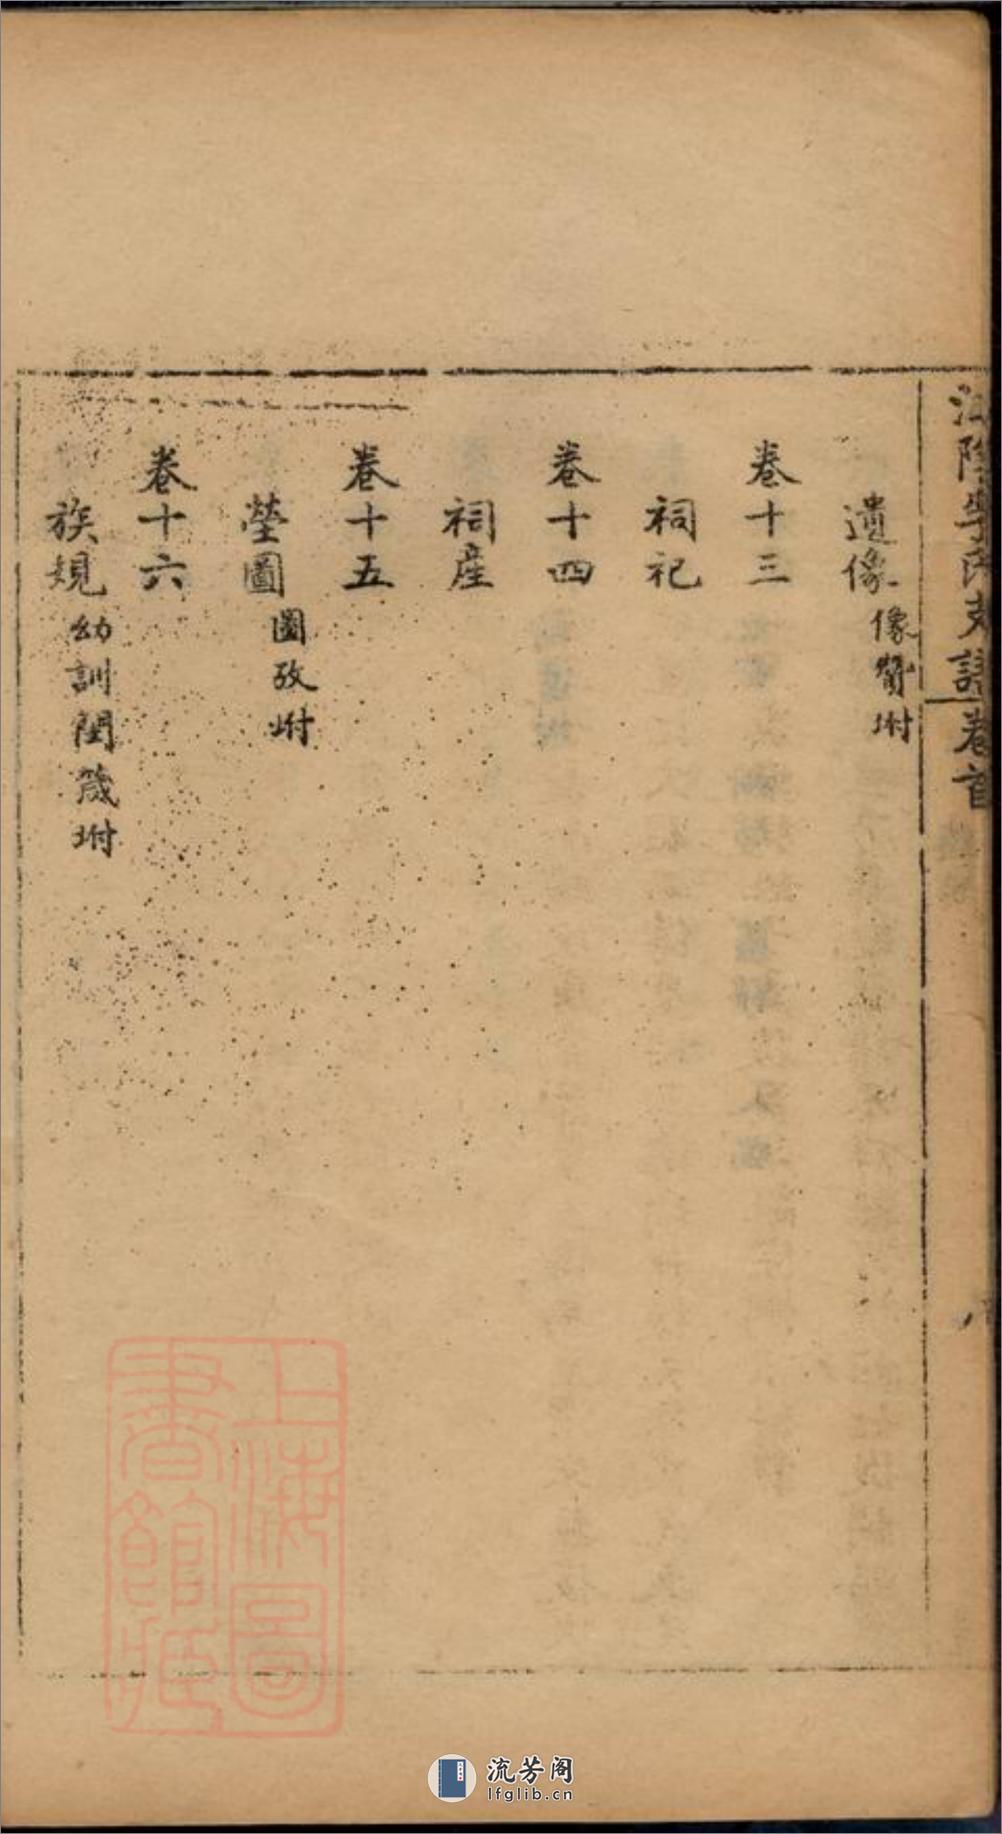 江陰李氏支譜卷首
遺像 像贊坿
卷十三
祠祀
卷十四
祠産
卷十五
塋圖 圖攷坿
卷十六
族規 幼訓閨箴坿
上海圖書館藏
流芳阁
lfglib.cn